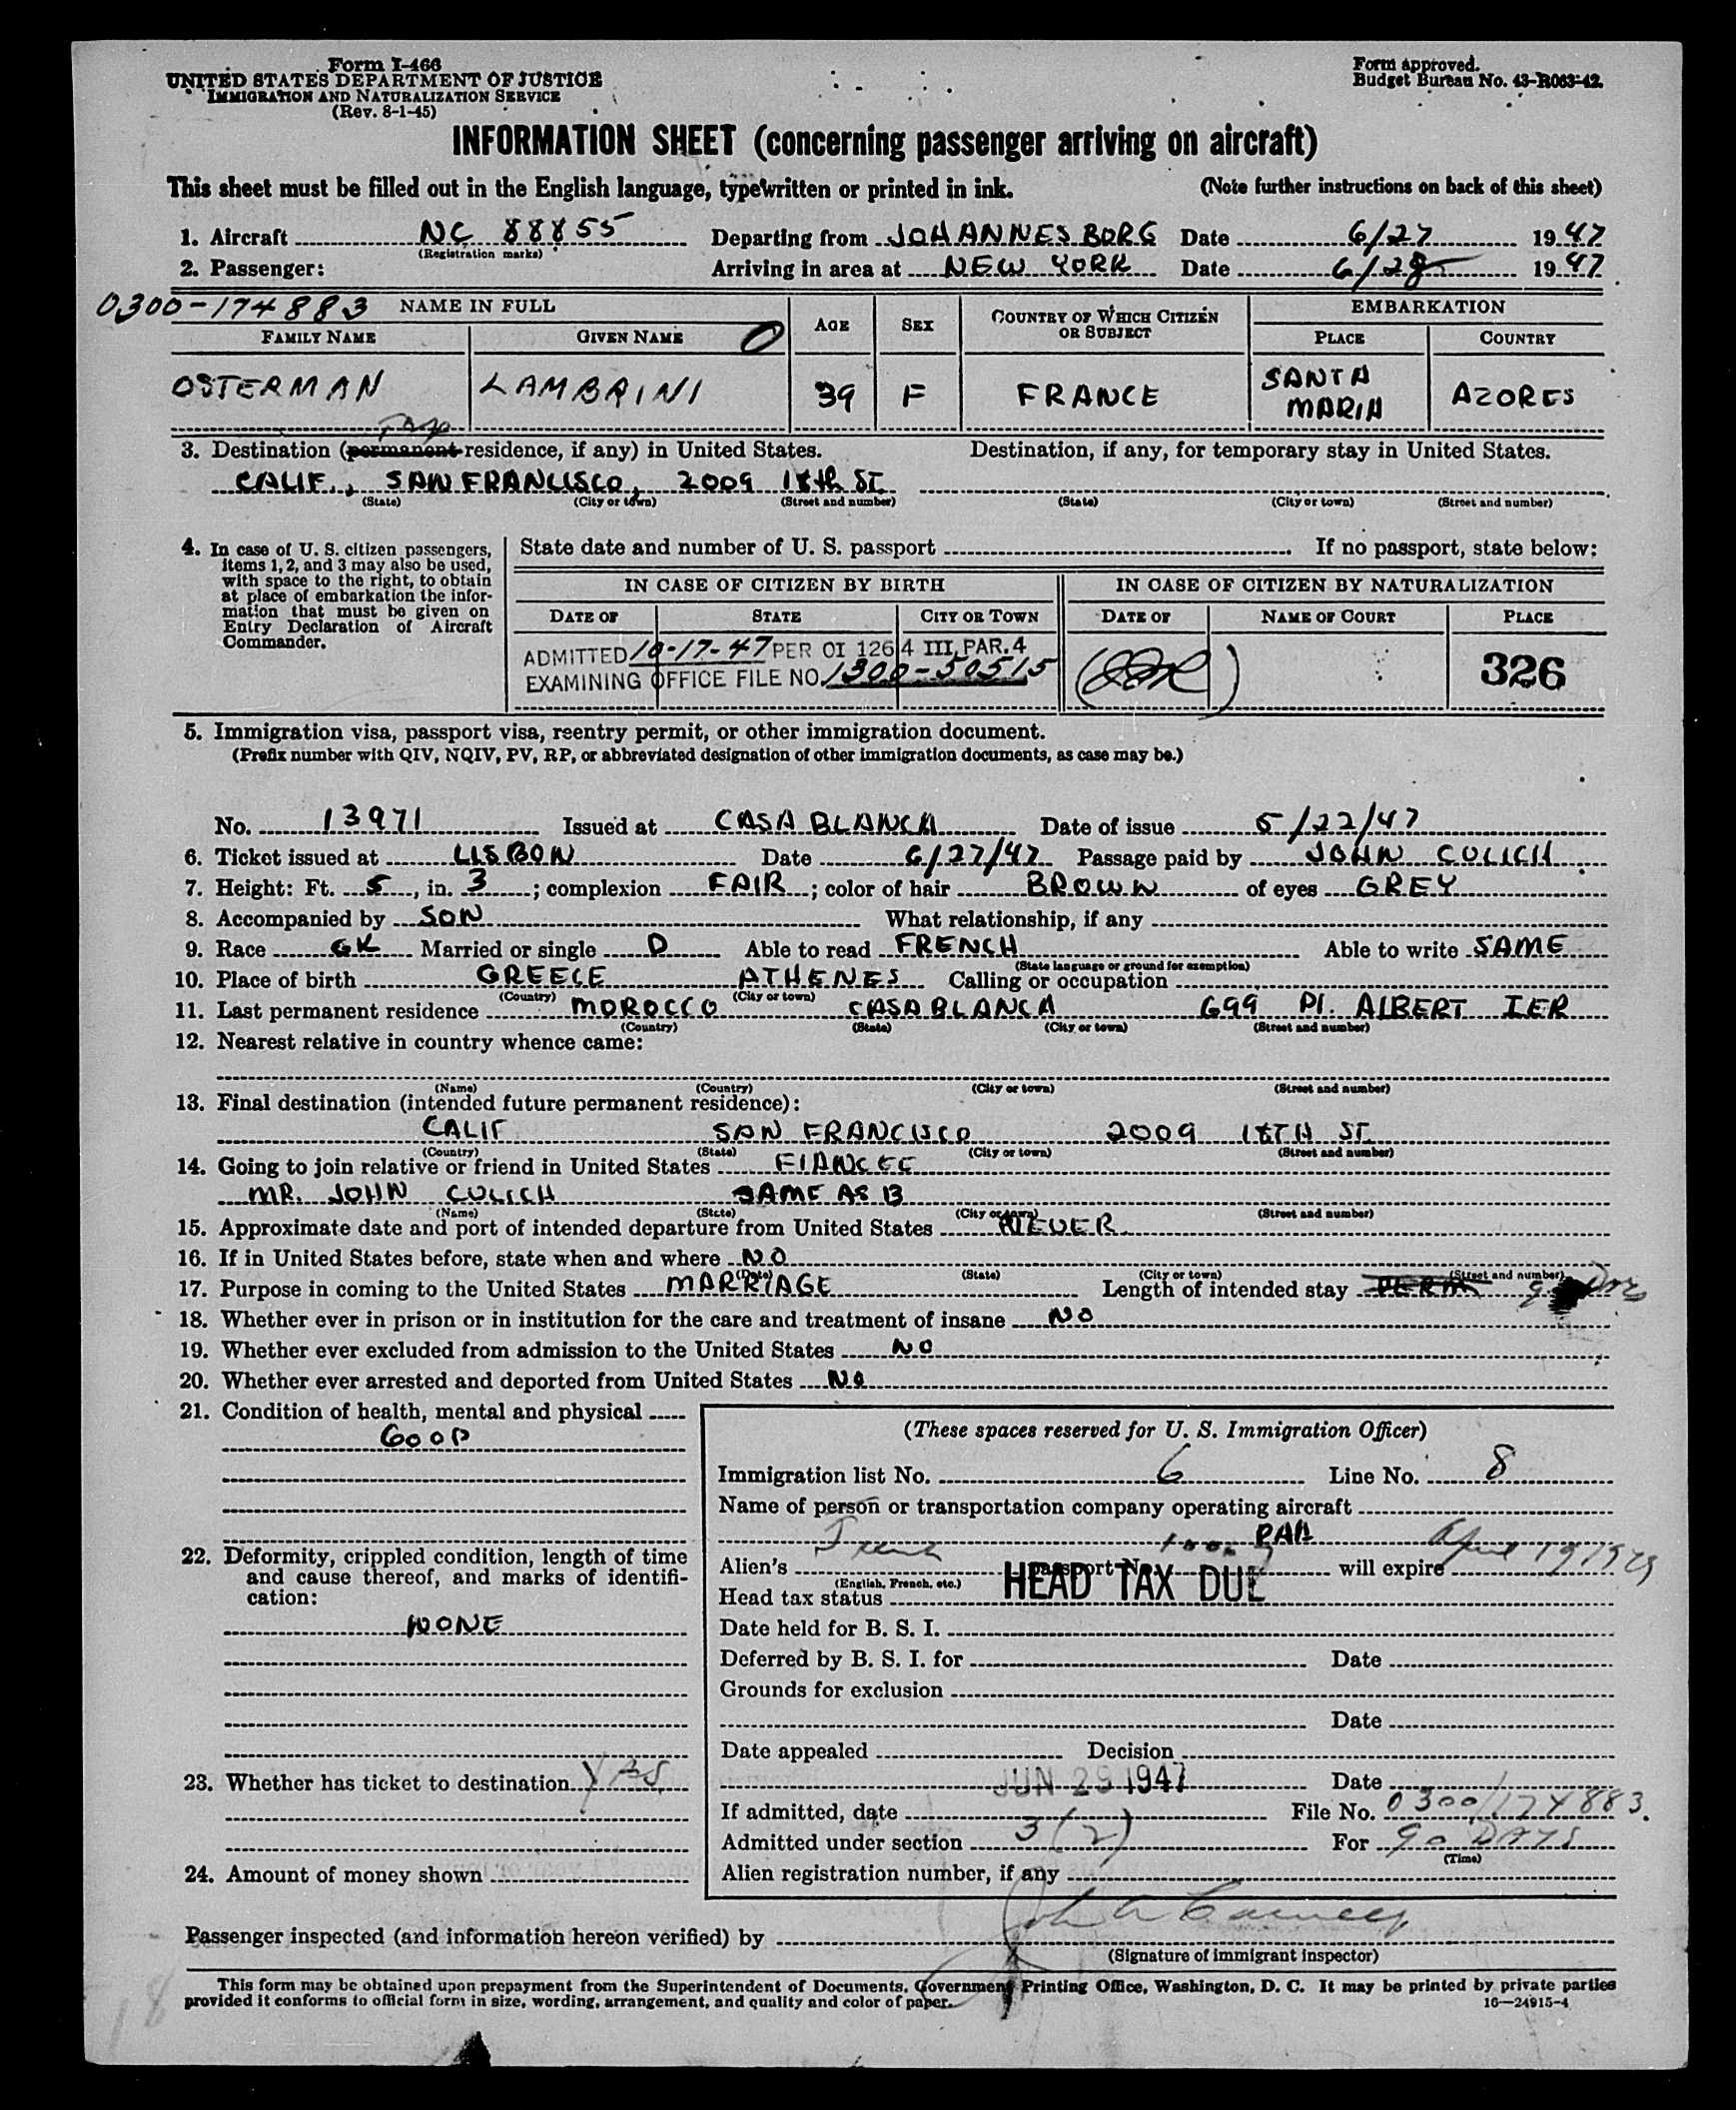 Form I-466
UNITED STATES DEPARTMENT OF JUSTICE
IMMIGRATION AND NATURALIZATION SERVICE
(Rev. 8-1-45)
Form approved.
Budget Bureau No. 43-R063-42.
INFORMATION SHEET (concerning passenger arriving on aircraft)
This sheet must be filled out in the English language, typewritten or printed in ink. (Note further instructions on back of this sheet)
1. Aircraft NC 88855 Departing from JOHANNESBORG Date 6/27 1947
(Registration marks)
2. Passenger: Arriving in area at NEW YORK Date 6/28 1947
0300-174883 NAME IN FULL
FAMILY NAME GIVEN NAME AGE SEX COUNTRY OF WHICH CITIZEN OR SUBJECT EMBARKATION PLACE COUNTRY
OSTERMAN LAMBRINI 39 F FRANCE SANTA MARIA AZORES
3. Destination (permanent residence, if any) in United States. Destination, if any, for temporary stay in United States.
CALIF., SAN FRANCISCO, 2009 18th ST.
(State) (City or town) (Street and number) (State) (City or town) (Street and number)
4. In case of U. S. citizen passengers, items 1, 2, and 3 may also be used, with space to the right, to obtain at place of embarkation the information that must be given on Entry Declaration of Aircraft Commander.
State date and number of U. S. passport If no passport, state below:
IN CASE OF CITIZEN BY BIRTH IN CASE OF CITIZEN BY NATURALIZATION
DATE OF STATE CITY OR TOWN DATE OF NAME OF COURT PLACE
ADMITTED 10-17-47 PER OI 1264 III, PAR. 4
EXAMINING OFFICE FILE NO. 1300-50515
326
5. Immigration visa, passport visa, reentry permit, or other immigration document.
(Prefix number with QIV, NQIV, PV, RP, or abbreviated designation of other immigration documents, as case may be.)
No. 13971 Issued at CASABLANCA Date of issue 5/22/47
6. Ticket issued at LISBON Date 6/27/47 Passage paid by JOHN CULICH
7. Height: Ft. 5, in. 3; complexion FAIR; color of hair BROWN of eyes GREY
8. Accompanied by SON What relationship, if any
9. Race GK Married or single D Able to read FRENCH Able to write SAME
(State language or ground for exemption)
10. Place of birth GREECE ATHENES Calling or occupation
(Country) (City or town)
11. Last permanent residence MOROCCO CASABLANCA 699 Pl. ALBERT IER
(Country) (State) (City or town) (Street and number)
12. Nearest relative in country whence came:
(Name) (Country) (City or town) (Street and number)
13. Final destination (intended future permanent residence):
CALIF SAN FRANCISCO 2009 18TH ST.
(Country) (State) (City or town) (Street and number)
14. Going to join relative or friend in United States FIANCEE
MR. JOHN CULICH SAME AS 13
(Name) (State) (City or town) (Street and number)
15. Approximate date and port of intended departure from United States NEVER
16. If in United States before, state when and where NO
(Date) (State) (City or town) (Street and number)
17. Purpose in coming to the United States MARRIAGE Length of intended stay PERM
18. Whether ever in prison or in institution for the care and treatment of insane NO
19. Whether ever excluded from admission to the United States NO
20. Whether ever arrested and deported from United States NO
21. Condition of health, mental and physical
GOOD
22. Deformity, crippled condition, length of time and cause thereof, and marks of identification:
NONE
23. Whether has ticket to destination YES
24. Amount of money shown
(These spaces reserved for U. S. Immigration Officer)
Immigration list No. 6 Line No. 8
Name of person or transportation company operating aircraft
PAA
Alien's French passport No. will expire April 19 1949
(English, French, etc.)
Head tax status HEAD TAX DUE
Date held for B. S. I.
Deferred by B. S. I. for Date
Grounds for exclusion
Date
Date appealed Decision
JUN 29 1947 Date
If admitted, date File No. 0300/174883.
Admitted under section 3(2) For 90 DAYS
(Time)
Alien registration number, if any
Passenger inspected (and information hereon verified) by
(Signature of immigrant inspector)
This form may be obtained upon prepayment from the Superintendent of Documents, Government Printing Office, Washington, D. C. It may be printed by private parties
provided it conforms to official form in size, wording, arrangement, and quality and color of paper.
16—24915-4